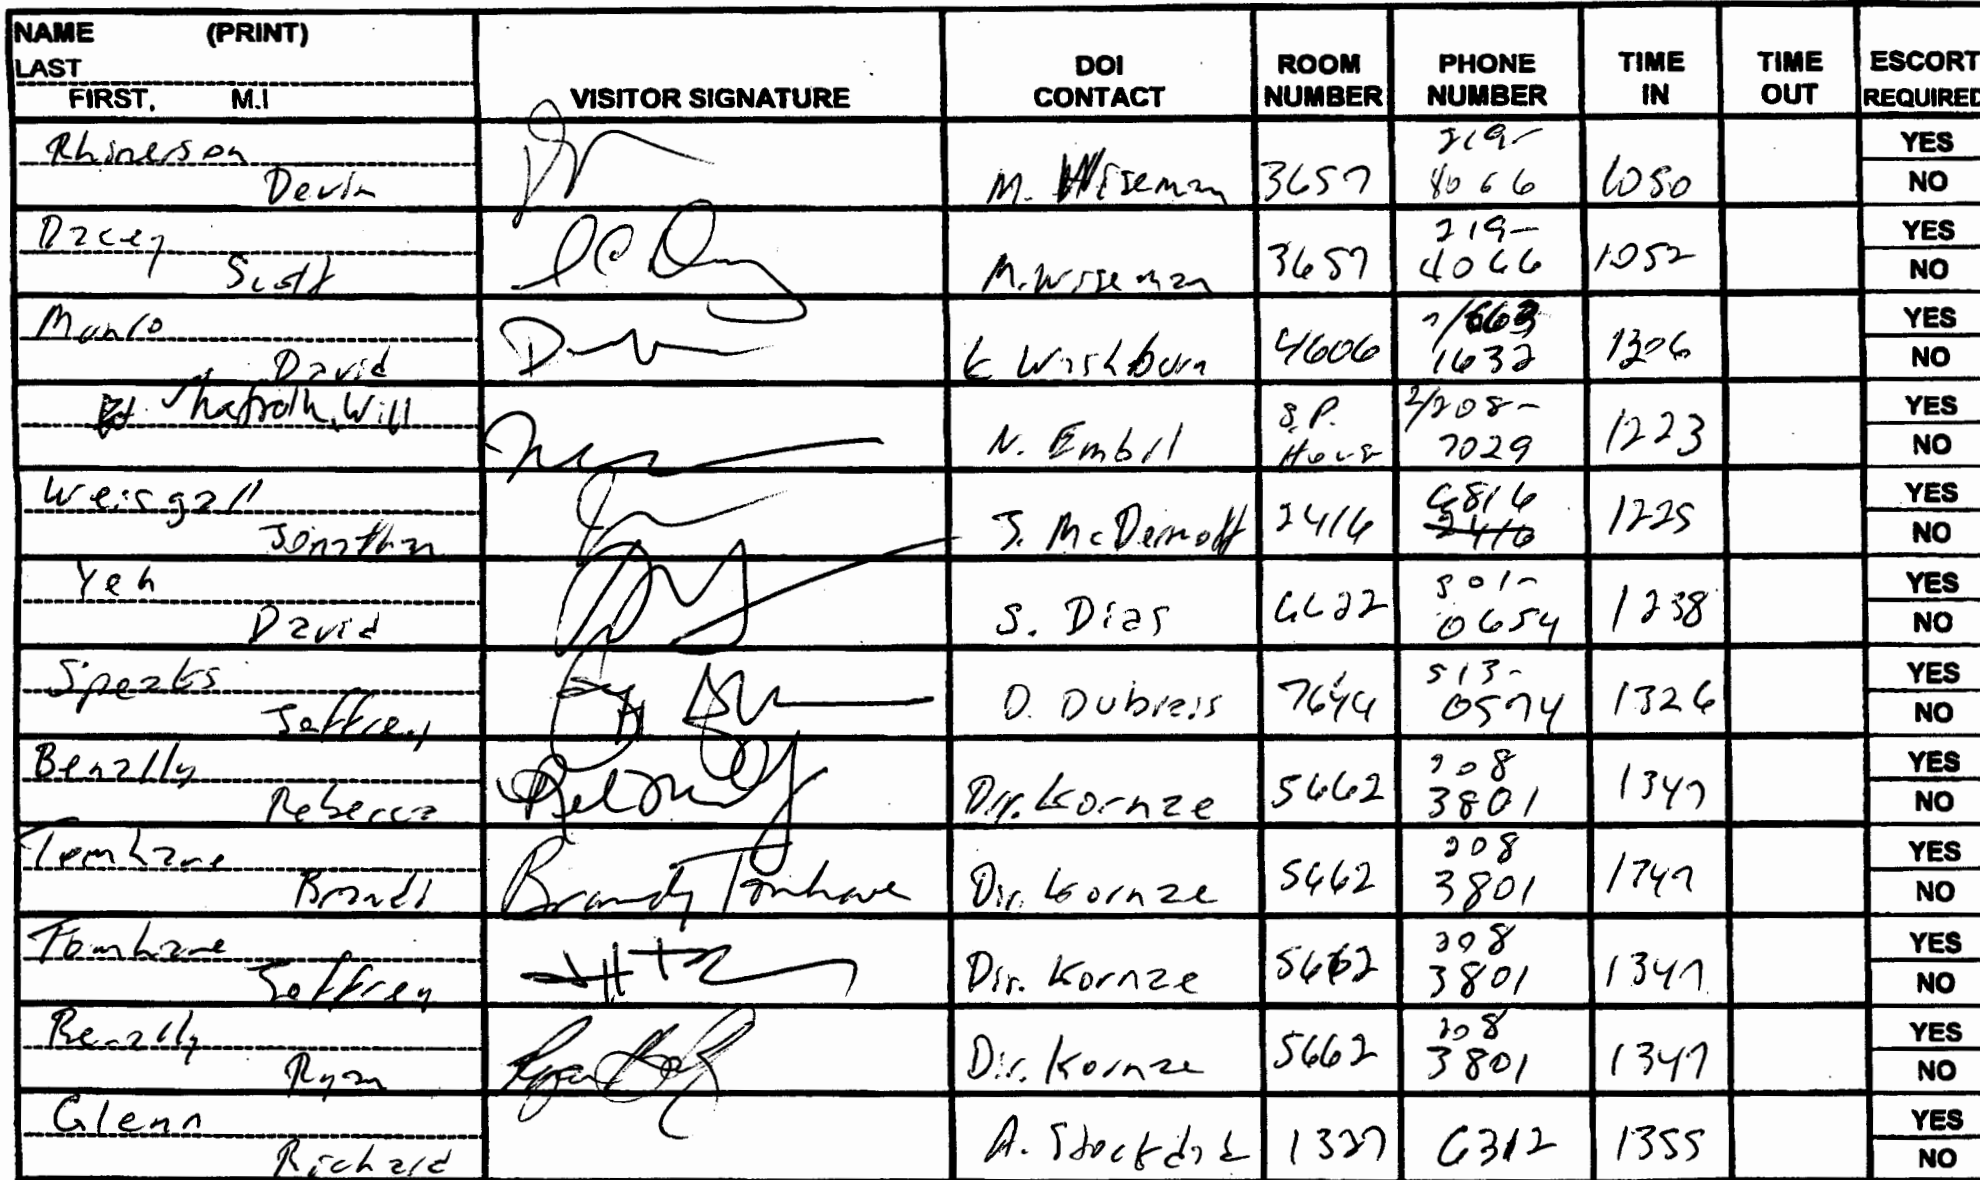 NAME (PRINT)
LAST
FIRST, M.I
VISITOR SIGNATURE
DOI
CONTACT
ROOM
NUMBER
PHONE
NUMBER
TIME
IN
TIME
OUT
ESCORT
REQUIRED
Rhinerson
Devin
M. Wiseman
3657
219-
4066
1050
YES
NO
Dacey
Scott
M. Wiseman
3657
219-
4066
1052
YES
NO
Munro
David
K Washburn
4606
1632
1206
YES
NO
Shafroth, Will
N. Embil
S.P.
House
2/208-
7029
1223
YES
NO
Weisgall
Jonathan
J. McDermott
2416
6816
2416
1225
YES
NO
Yeh
David
S. Dias
6622
501-
0654
1238
YES
NO
Speaks
Jeffrey
D. Dubrais
7644
513-
0574
1326
YES
NO
Benally
Rebecca
Dir. Kornze
5662
208
3801
1347
YES
NO
Tomhave
Brandi
Brandy Tomhave
Dir. Kornze
5662
208
3801
1347
YES
NO
Tomhave
Jeffrey
Dir. Kornze
5662
208
3801
1347
YES
NO
Benally
Ryan
Dir. Kornze
5662
208
3801
1347
YES
NO
Glenn
Richard
A. Stockdale
1327
6312
1355
YES
NO